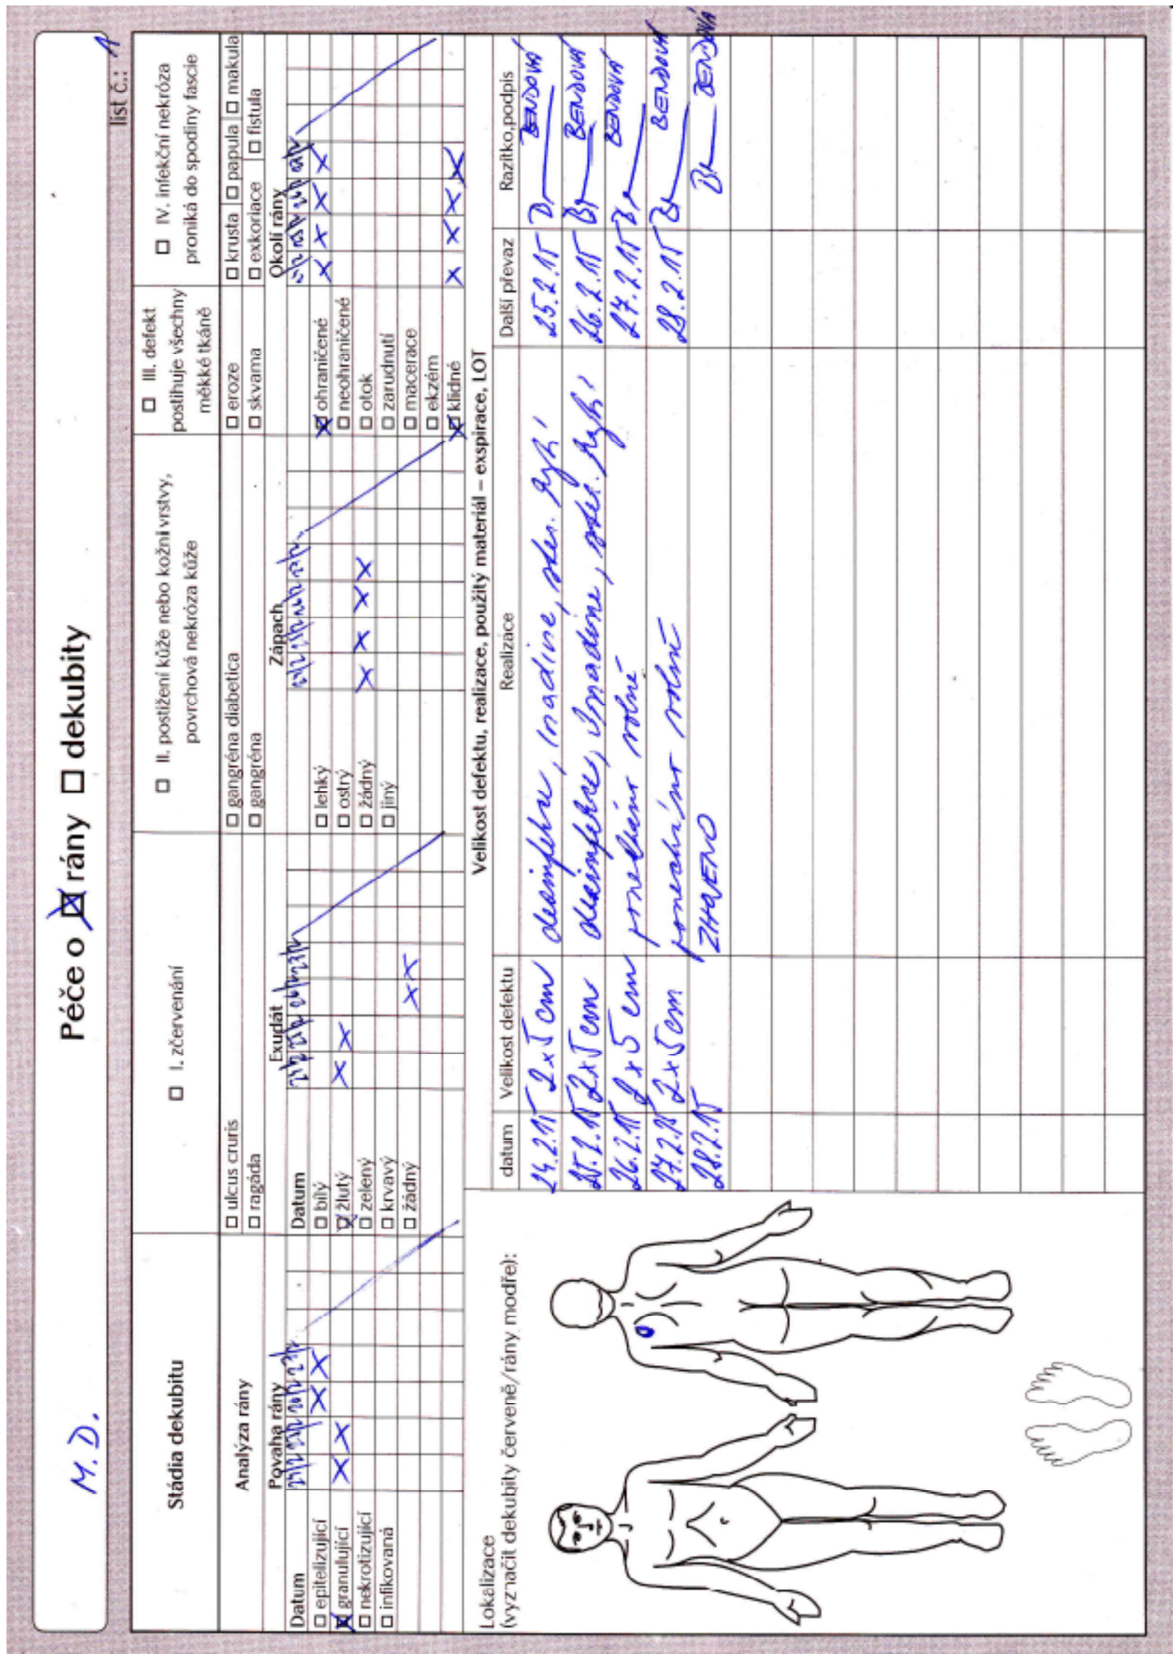 Péče o rány dekubity
M. D.
list č.: 1
Stádia dekubitu
I. zčervenání
II. postižení kůže nebo kožní vrstvy,
povrchová nekróza kůže
III. defekt
postihuje všechny
měkké tkáně
IV. infekční nekróza
proniká do spodiny fascie
Analýza rány
ulcus cruris
gangréna diabetica
eroze
krusta
papula
makula
ragáda
gangréna
skvama
exkoriace
fistula
Povaha rány
Exudát
Zápach
Okolí rány
Datum
epitelizující
granulující
nekrotizující
infikovaná
Datum
bílý
žlutý
zelený
krvavý
žádný
lehký
ostrý
žádný
jiný
ohraničené
neohraničené
otok
zarudnutí
macerace
ekzém
klidné
Lokalizace
(vyznačit dekubity červeně/rány modře):
Velikost defektu, realizace, použitý materiál – exspirace, LOT
datum Velikost defektu Realizace Další převaz Razítko,podpis
24.2.15 2x5 cm desinfekce, Inadine, ster. krytí 25.2.15 BENDOVÁ
25.2.15 2x5 cm desinfekce, Inadine, ster. krytí 26.2.15 BENDOVÁ
26.2.15 2x5 cm ponecháno volně 27.2.15 BENDOVÁ
27.2.15 2x5cm ponecháno volně 28.2.15 BENDOVÁ
28.2.15 ZHOJENO BENDOVÁ